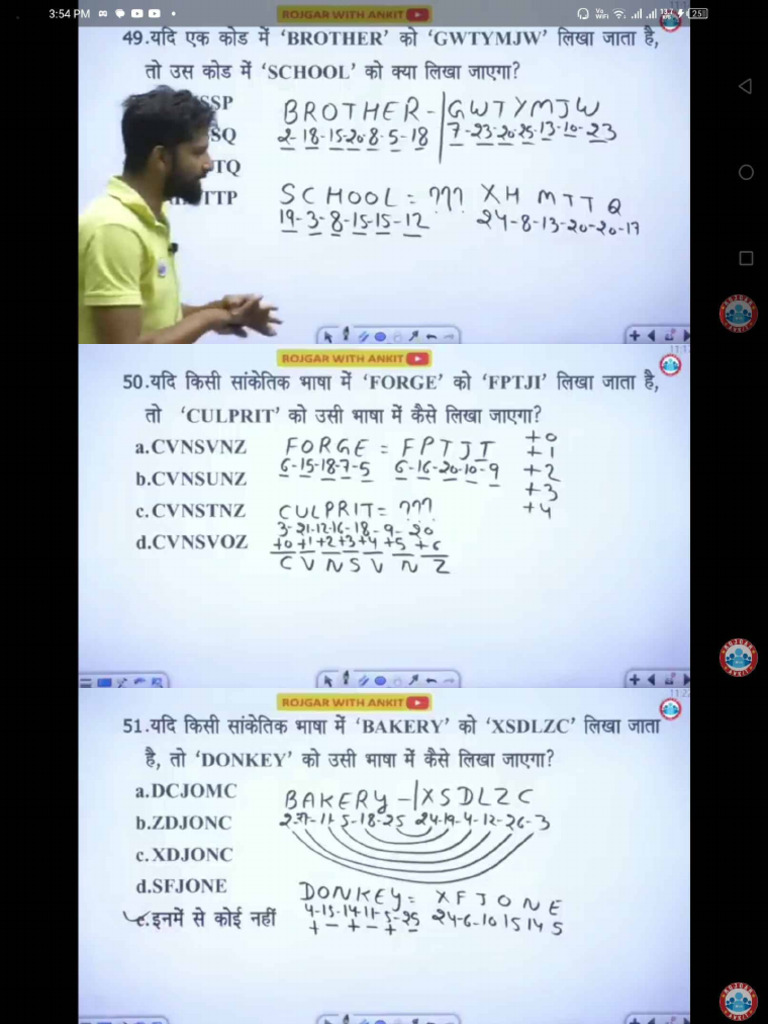 3:54 PM
25
ROJGAR WITH ANKIT
49.यदि एक कोड में 'BROTHER' को 'GWTYMJW' लिखा जाता है,
तो उस कोड में 'SCHOOL' को क्या लिखा जाएगा?
SSP
SQ
TQ
TTP
BROTHER - GWTYMJW
2-18-15-20-8-5-18 7-23-20-25-13-10-23
SCHOOL = ??? XH MTTQ
19-3-8-15-15-12 24-8-13-20-20-17
ROJGAR WITH ANKIT
50.यदि किसी सांकेतिक भाषा में 'FORGE' को 'FPTJI' लिखा जाता है,
तो 'CULPRIT' को उसी भाषा में कैसे लिखा जाएगा?
a.CVNSVNZ
b.CVNSUNZ
c.CVNSTNZ
d.CVNSVOZ
FORGE = FPTJI
6-15-18-7-5 6-16-20-10-9
+0
+1
+2
+3
+4
CULPRIT = ???
3-21-12-16-18-9-20
+0 +1 +2 +3 +4 +5 +6
C V N S V N Z
ROJGAR WITH ANKIT
51.यदि किसी सांकेतिक भाषा में 'BAKERY' को 'XSDLZC' लिखा जाता
है, तो 'DONKEY' को उसी भाषा में कैसे लिखा जाएगा?
a.DCJOMC
b.ZDJONC
c.XDJONC
d.SFJONE
e.इनमें से कोई नहीं
BAKERY - XSDLZC
11-5-18-25 24-19-4-12-26-3
DONKEY = XFJONE
4-15-14-11-5-25 24-6-10 15 14 5
+ - + - + -